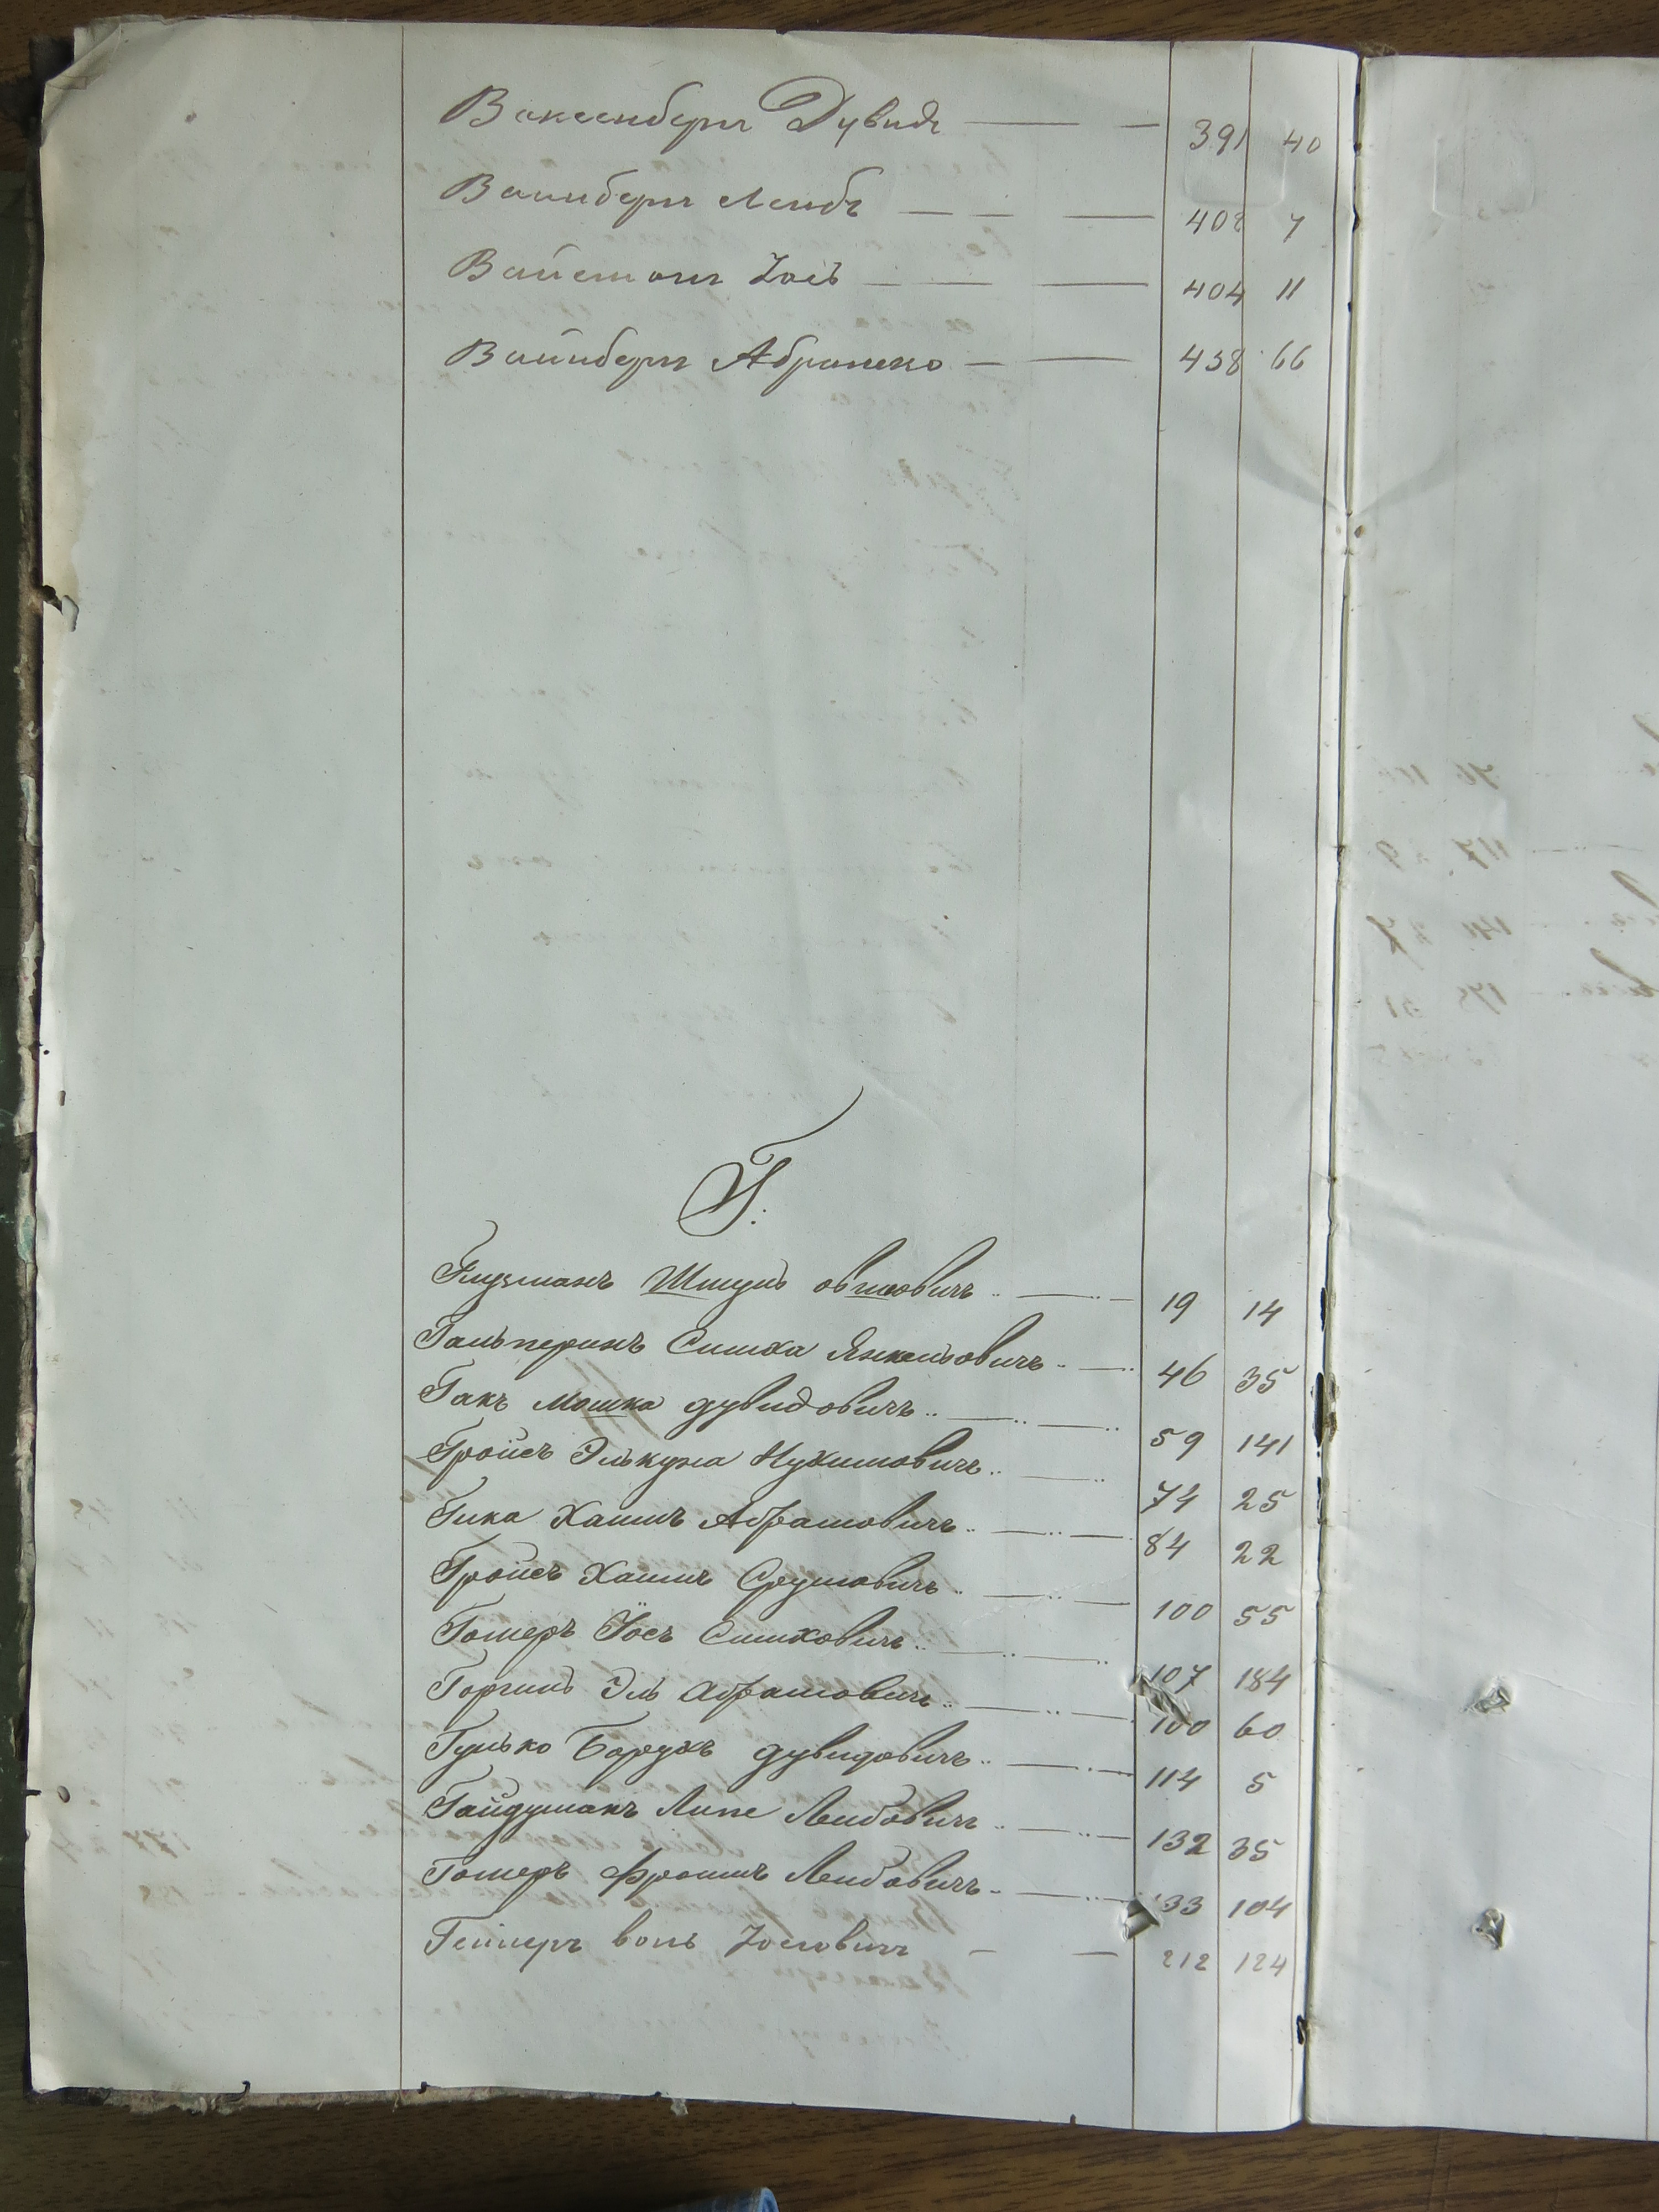 Вексенберг Дувидъ — — 391 40
Вайнберг Лейбъ — — — 402 7
Вайсман Іосъ — — — 404 11
Вайнберг Абрамко — — 438 66
Г.
Глузманъ Шмуль Овшіовичъ 19 14
Гальперинъ Симха Янкельовичъ 46 35
Гакъ Мошка Дувидовичъ 59 141
Гройсъ Элькуна Нухимовичъ 74 25
Гика Хаимъ Абрамовичъ 84 22
Гройсъ Хаимъ Срулювичъ 100 55
Гомеръ Іосъ Симховичъ 107 184
Горгиль Эль Абрамовичъ 100 60
Гулько Борухъ Дувидовичъ 114 5
Гайдуманъ Липе Лейбовичъ 132 35
Гомеръ Фроимъ Лейбовичъ 133 104
Іосиовичъ — — 212 124